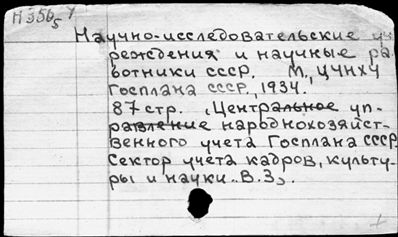 Н 356 у
5
Научно-исследовательские уч
реждения и научные ра
ботники СССР. М., ЦУНХУ
Госплана СССР, 1934.
87 стр. (Центральное уп-
равление народнохозяйст-
венного учета Госплана СССР
Сектор учета кадров, культу-
ры и науки. В.3).